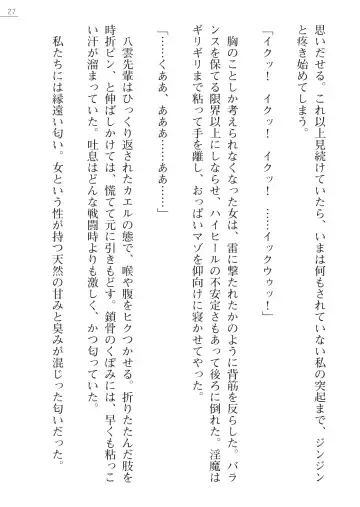 27
思いだせる。これ以上見続けていたら、いまは何もされていない私の突起まで、ジンジン
と疼き始めてしまう。
「イクッ！　イクッ！　イクッ！　……イックウゥッ！」
胸のことしか考えられなくなった女は、雷に撃たれたかのように背筋を反らした。バラ
ンスを保てる限界以上にしならせ、ハイヒールの不安定さもあって後ろに倒れた。淫魔は
ギリギリまで粘って手を離し、おっぱいマゾを仰向けに寝かせてやった。
「……くああ、あああ……ああ……」
八雲先輩はひっくり返されたカエルの態で、喉や腹をヒクつかせる。折りたたんだ肢を
時折ピン、と伸ばしかけては、慌てて元に引きもどす。鎖骨のくぼみには、早くも粘っこ
い汗が溜まっていた。吐息はどんな戦闘時よりも激しく、かつ匂っていた。
私たちには縁遠い匂い。女という性が持つ天然の甘みと臭みが混じった匂いだった。